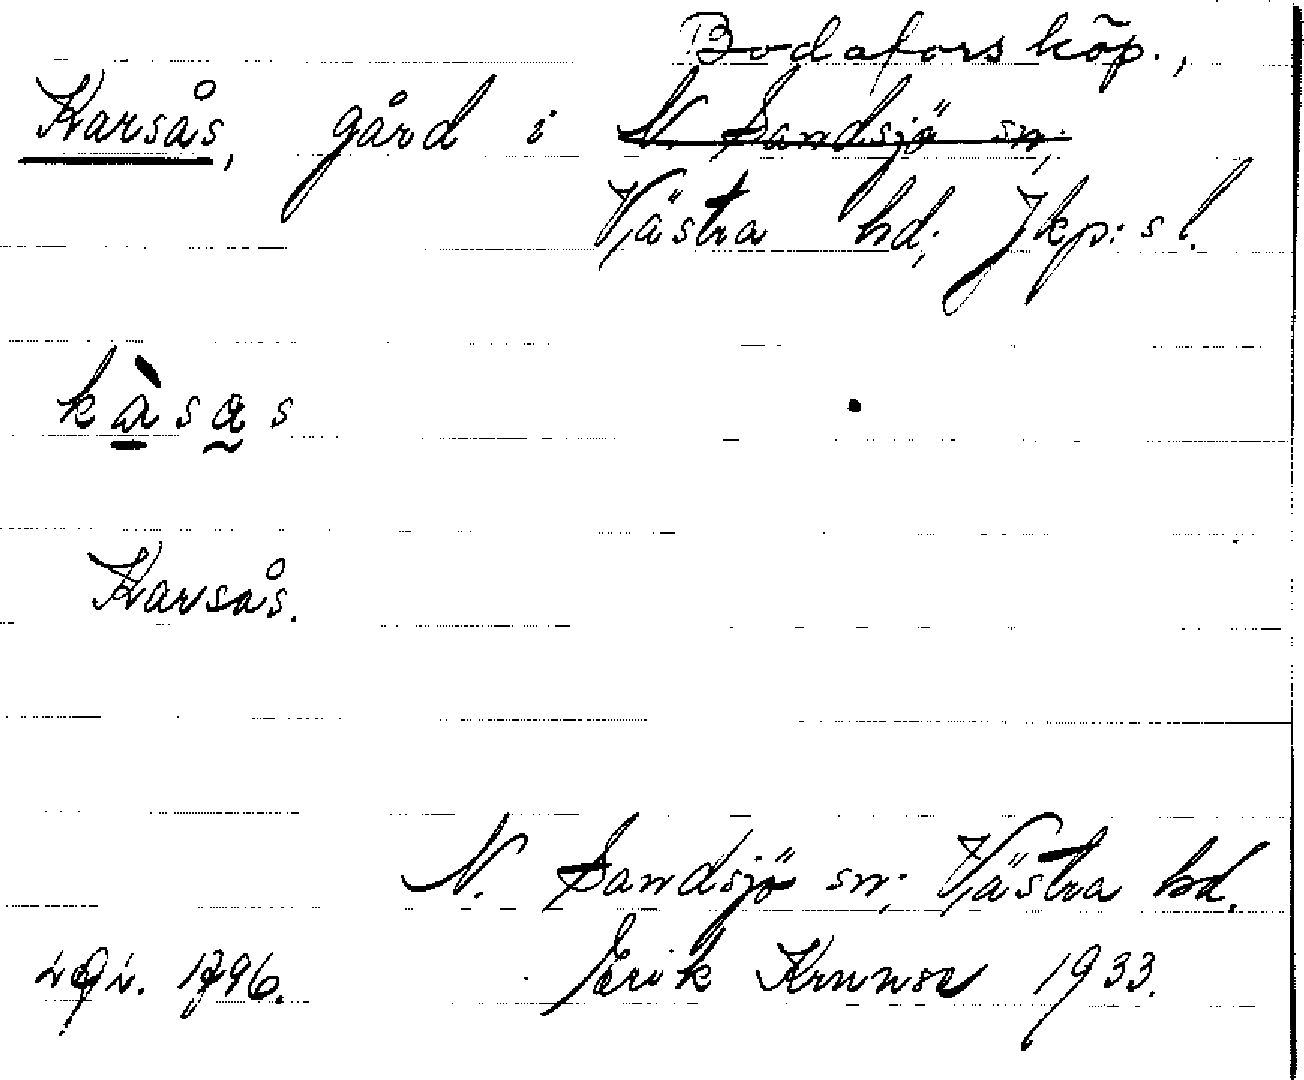 Bodafors köp.,
Karsås, gård i N. Sandsjö sn,
Västra hd; Jkp:s l.
kàsas
Karsås.
N. Sandsjö sn; Västra hd.
1796. Erik Krunse 1933.